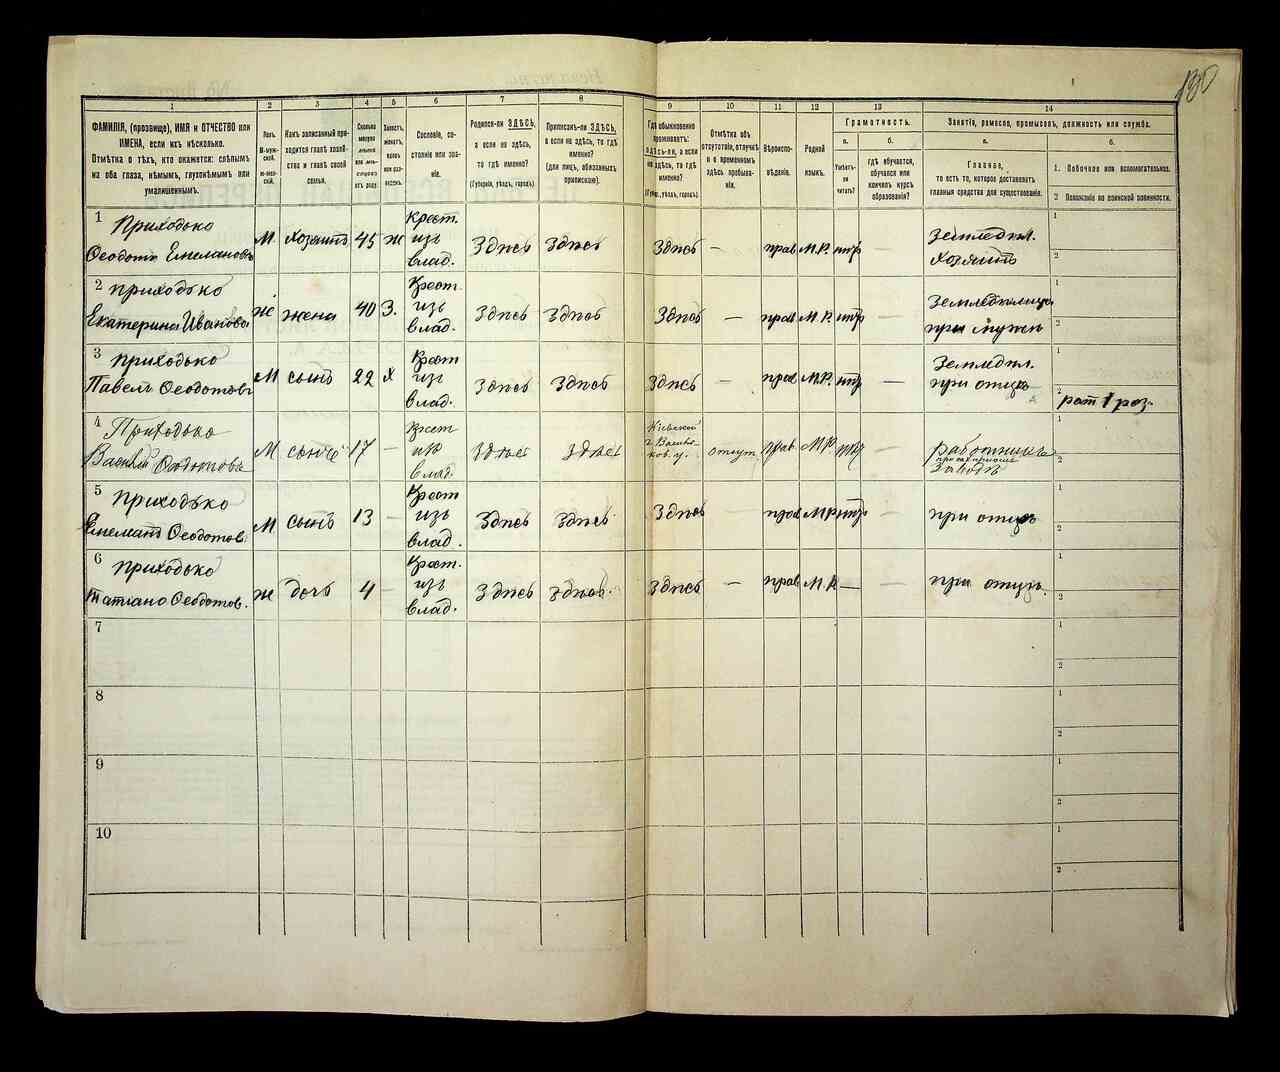 130
1
2
3
4
5
6
7
8
9
10
11
12
13
14
ФАМИЛІЯ, (прозвище), ИМЯ и ОТЧЕСТВО или
ИМЕНА, если ихъ нѣсколько.
Отмѣтка о тѣхъ, кто окажется: слѣпымъ
на оба глаза, нѣмымъ, глухонѣмымъ или
умалишеннымъ.
Полъ.
М-муж-
ской.
Ж-жен-
скій.
Какъ записанный при-
ходится главѣ хозяй-
ства и главѣ своей
семьи.
Сколько
минуло
лѣтъ
или мѣ-
сяцевъ
отъ роду.
Холостъ,
женатъ,
вдовъ
или раз-
веденъ.
Сословіе, со-
стояніе или зва-
ніе.
Родился-ли ЗДѢСЬ,
а если не здѣсь,
то гдѣ именно?
(Губернія, уѣздъ, городъ)
Приписанъ-ли ЗДѢСЬ,
а если не здѣсь, то гдѣ
именно?
(для лицъ, обязанныхъ
припискою).
Гдѣ обыкновенно
проживаетъ:
здѣсь-ли, а если
не здѣсь, то гдѣ
именно?
(Губ., уѣздъ, городъ).
Отмѣтка объ
отсутствіи, отлучкѣ
и о временномъ
здѣсь пребыва-
ніи.
Вѣроиспо-
вѣданіе.
Родной
языкъ.
Грамотность.
а.
Умѣетъ-
ли
читать?
б.
гдѣ обучается,
обучался или
кончилъ курсъ
образованія?
Занятіе, ремесло, промыселъ, должность или служба.
а.
Главное,
то есть то, которое доставляетъ
главныя средства для существованія.
б.
1. Побочное или вспомогательное.
2 Положеніе по воинской повинности.
1
Приходько
Ѳеодотъ Емельановъ
М
хозяинъ
45
ж
Крест.
изъ
влад.
Здѣсь
Здѣсь
Здѣсь
—
прав
М.Р.
нтр
—
Земледѣл.
Хозяинъ
1
2
2
Приходько
Екатерина Иванова
ж
жена
40
З.
Крест.
изъ
влад.
Здѣсь
Здѣсь
Здѣсь
—
прав
М.Р.
нтр
—
Земледѣлица
при мужѣ
1
2
3
Приходько
Павелъ Ѳеодотовъ
М
сынъ
22
х
Крест
изъ
влад.
Здѣсь
Здѣсь
Здѣсь
—
прав
М.Р.
нтр
—
Земледѣл.
при отцѣ
1
2
рат 1 раз.
4
Приходько
М
сынъ
17
—
Крест
изъ
влад.
Здѣсь
Здѣсь
Кіевской
г. Василь-
ков. у.
отлуч
прав
М.Р.
—
работникъ
заводѣ
1
2
5
Приходько
Емельанъ Ѳеодотов.
М
сынъ
13
—
Крест
изъ
влад.
Здѣсь
Здѣсь
Здѣсь
—
прав
М.Р.
нтр
—
при отцѣ
1
2
6
Приходько
Татиано Ѳеодотов.
ж
дочь
4
—
Крест.
изъ
влад.
Здѣсь
Здѣсь
Здѣсь
—
прав
М.Р.
—
—
при отцѣ.
1
2
7
1
2
8
1
2
9
1
2
10
1
2